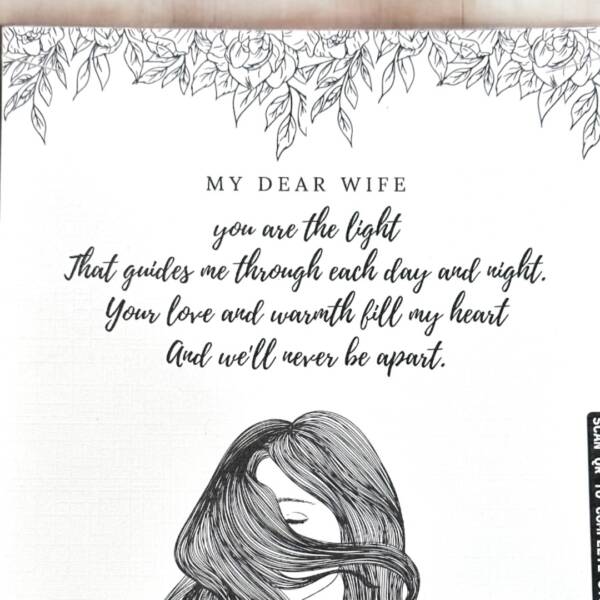 MY DEAR WIFE
you are the light
That guides me through each day and night.
Your love and warmth fill my heart
And we'll never be apart.
SCAN QR TO COMPLETE